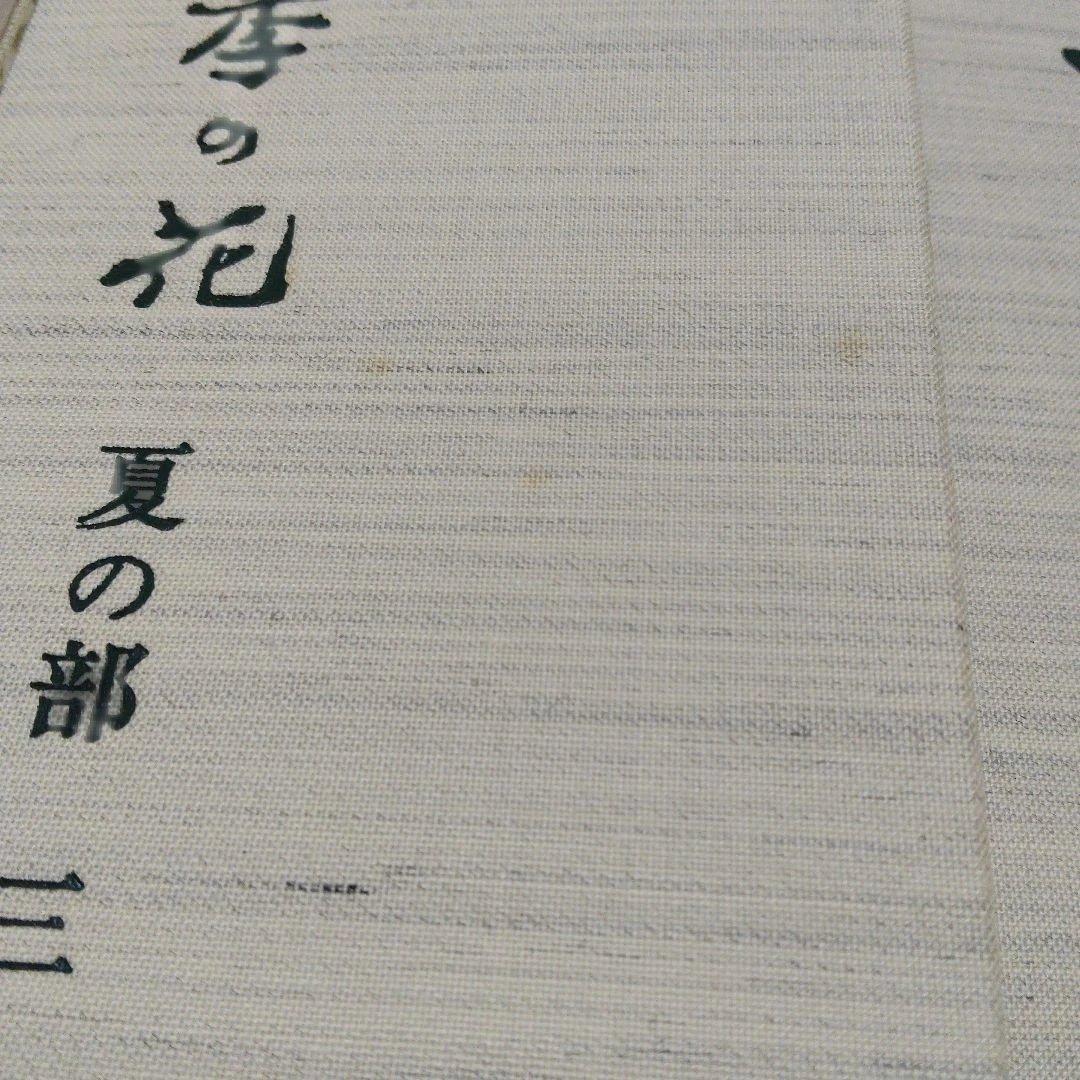 季の花
夏の部
三